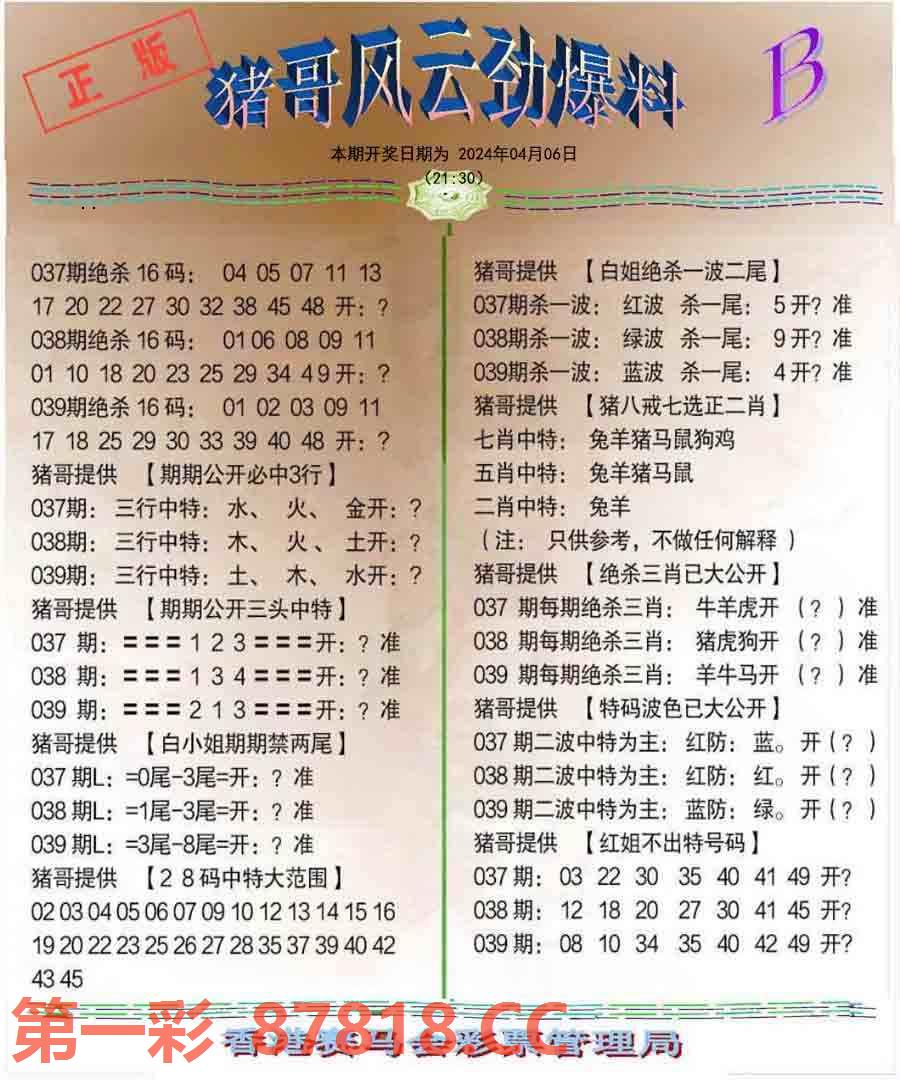 正版
猪哥风云劲爆料
B
本期开奖日期为 2024年04月06日
(21:30)
037期绝杀16码： 04 05 07 11 13
17 20 22 27 30 32 38 45 48 开：?
038期绝杀16码： 01 06 08 09 11
01 10 18 20 23 25 29 34 49开：?
039期绝杀16码： 01 02 03 09 11
17 18 25 29 30 33 39 40 48 开：?
猪哥提供 【期期公开必中3行】
037期： 三行中特： 水、 火、 金开：?
038期： 三行中特： 木、 火、 土开：?
039期： 三行中特： 土、 木、 水开：?
猪哥提供 【期期公开三头中特】
037 期：===1 2 3===开：? 准
038 期：===1 3 4===开：? 准
039 期：===2 1 3===开：? 准
猪哥提供 【白小姐期期禁两尾】
037期L：=0尾-3尾=开：? 准
038期L：=1尾-3尾=开：? 准
039期L：=3尾-8尾=开：? 准
猪哥提供 【28码中特大范围】
02 03 04 05 06 07 09 10 12 13 14 15 16
19 20 22 23 25 26 27 28 35 37 39 40 42
43 45
猪哥提供 【白姐绝杀一波二尾】
037期杀一波： 红波 杀一尾： 5开? 准
038期杀一波： 绿波 杀一尾： 9开? 准
039期杀一波： 蓝波 杀一尾： 4开? 准
猪哥提供 【猪八戒七选正二肖】
七肖中特： 兔羊猪马鼠狗鸡
五肖中特： 兔羊猪马鼠
二肖中特： 兔羊
（注： 只供参考，不做任何解释）
猪哥提供 【绝杀三肖已大公开】
037 期每期绝杀三肖： 牛羊虎开 （?）准
038 期每期绝杀三肖： 猪虎狗开 （?）准
039 期每期绝杀三肖： 羊牛马开 （?）准
猪哥提供 【特码波色已大公开】
037期二波中特为主：红防：蓝。开(?)
038期二波中特为主：红防：红。开(?)
039期二波中特为主：蓝防：绿。开(?)
猪哥提供 【红姐不出特号码】
037期： 03 22 30 35 40 41 49 开?
038期： 12 18 20 27 30 41 45 开?
039期： 08 10 34 35 40 42 49 开?
第一彩 87818.CC
香港赛马会彩票管理局